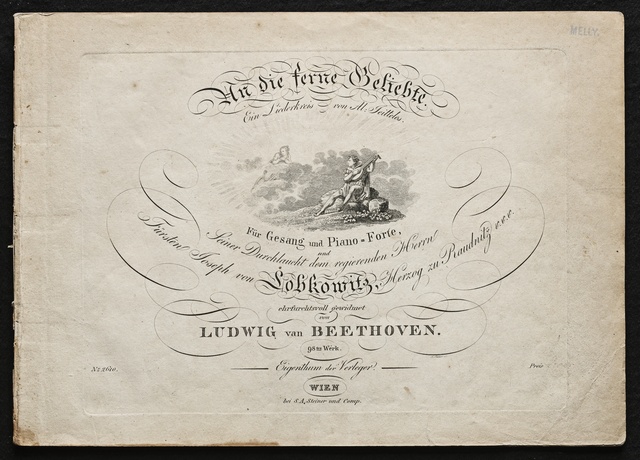 MELLY.
An die ferne Geliebte.
Ein Liederkreis von Al. Jeitteles.
Für Gesang und Piano=Forte,
und
Seiner Durchlaucht dem regierenden Herrn
Fürsten Joseph von Lobkowitz, Herzog zu Raudnitz &.&.&.
ehrfurchtsvoll gewidmet
von
LUDWIG van BEETHOVEN.
98tes Werk.
Eigenthum der Verleger.
No. 2610.
Preis
WIEN
bei S.A. Steiner und Comp.